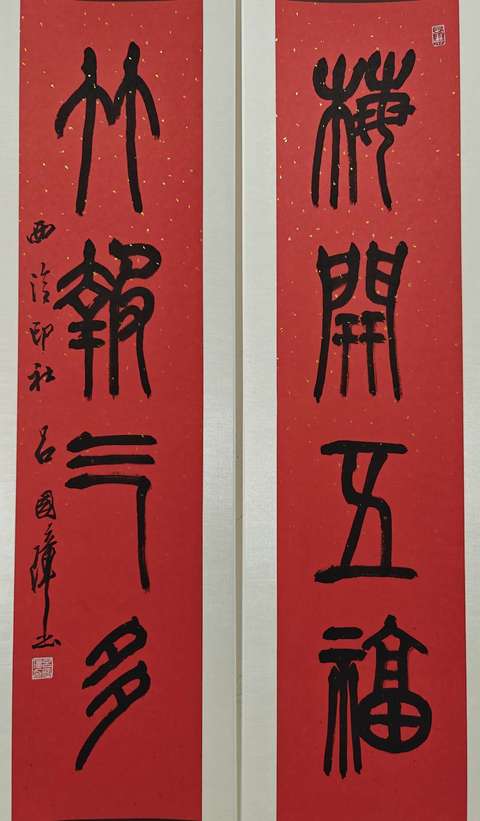 梅開五福
竹報三多
西泠印社 吕國璋书